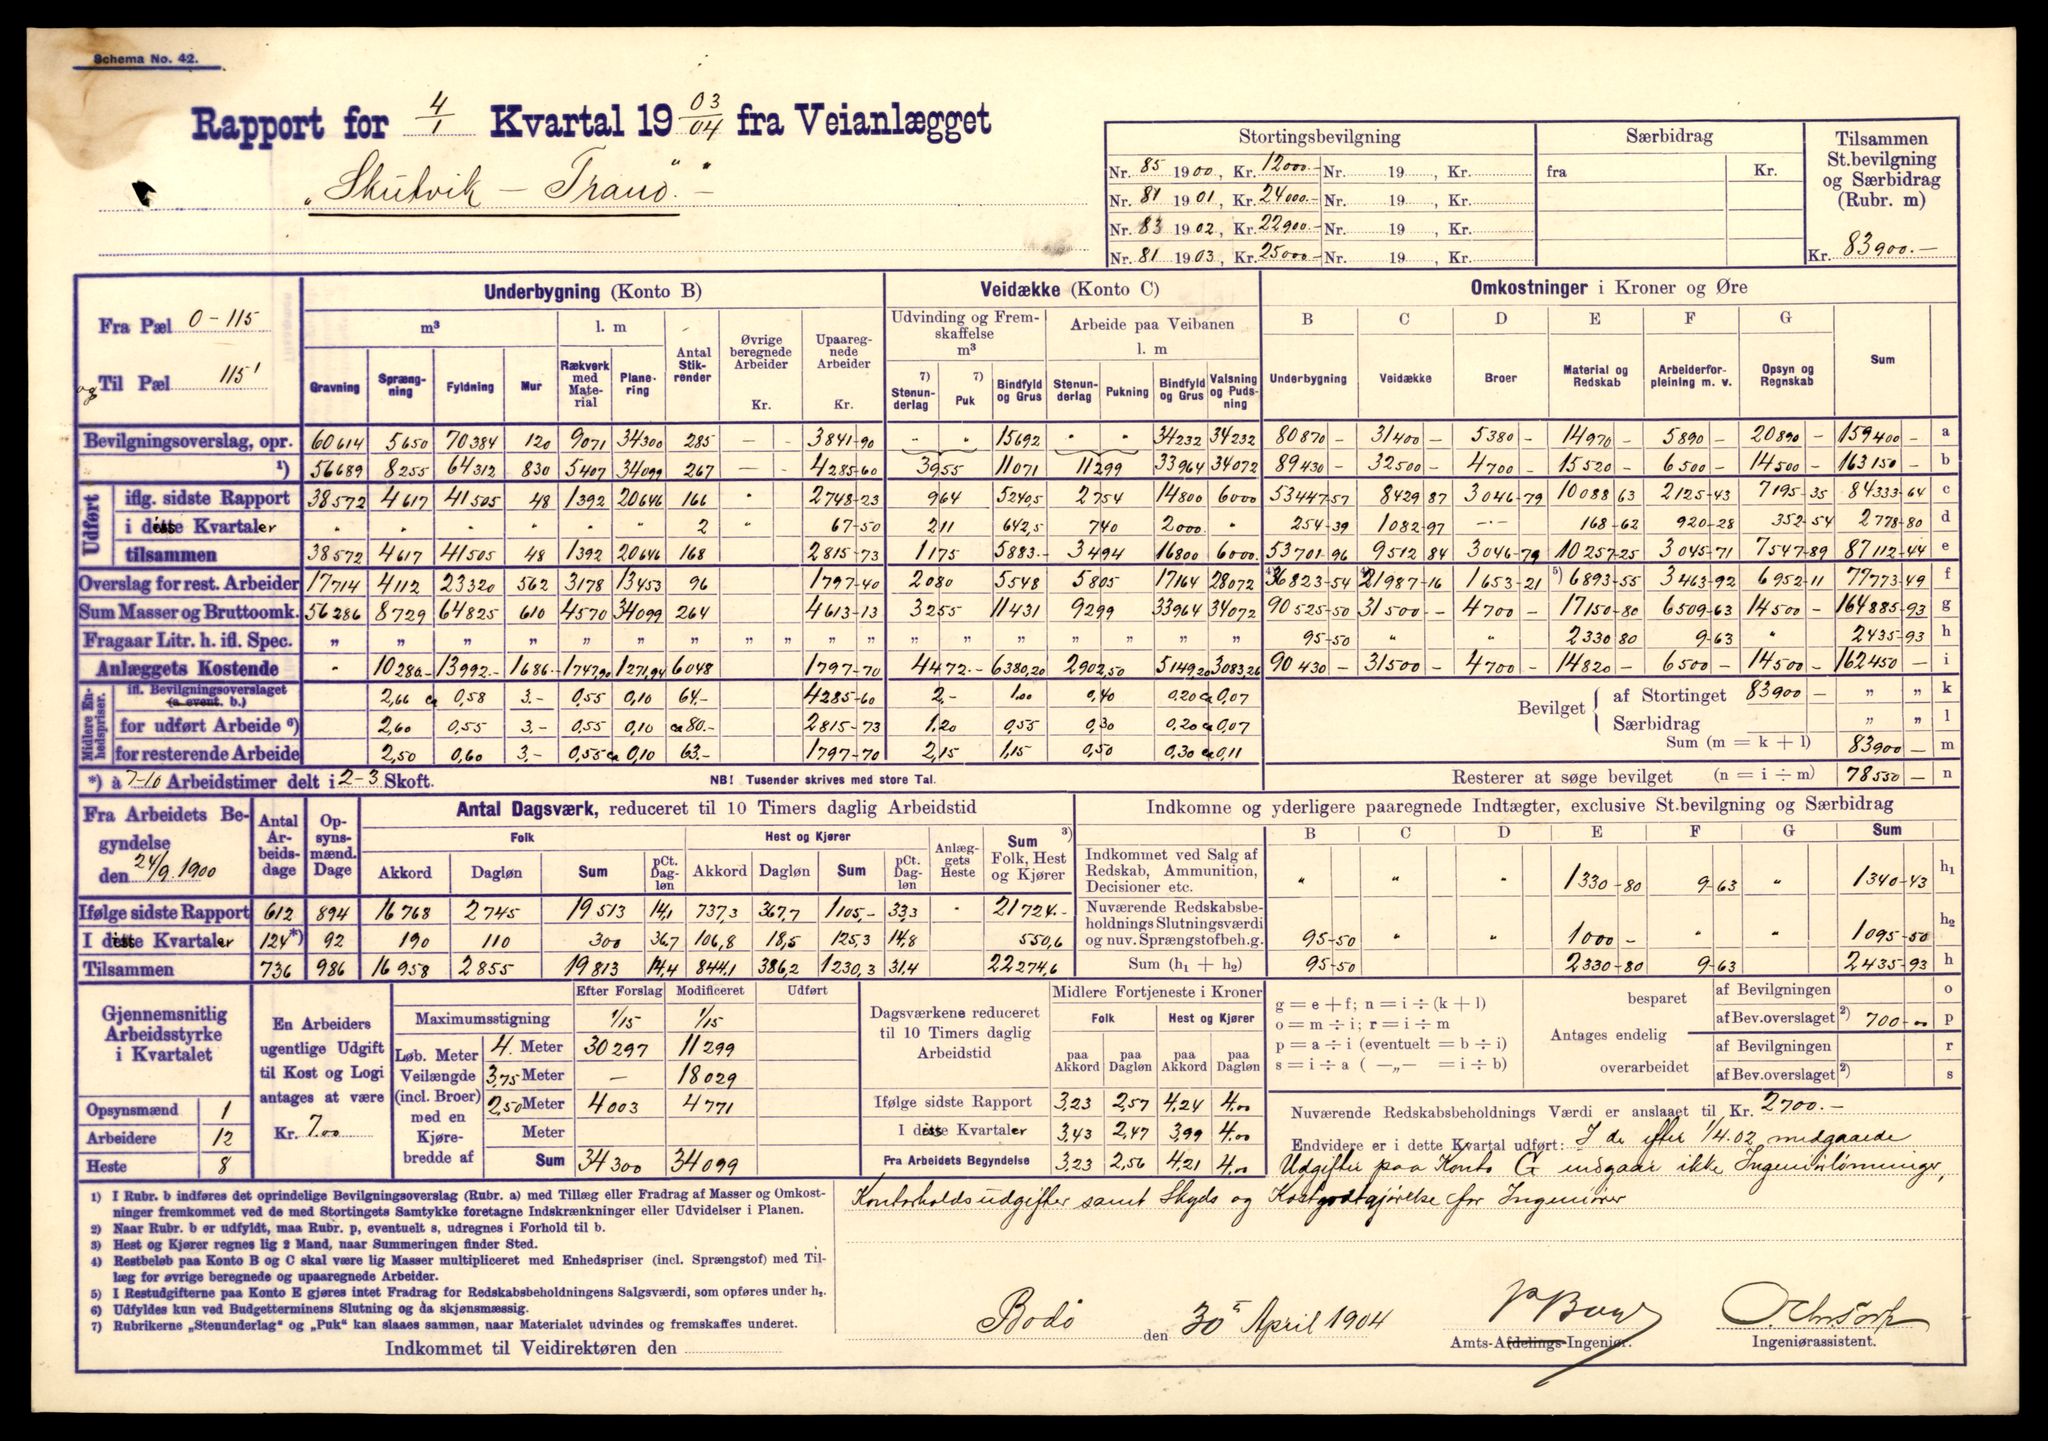 Schema No. 42.
Rapport for 4/1 Kvartal 19 03/04 fra Veianlægget
„Skutvik – Tranö."
Stortingsbevilgning Særbidrag Tilsammen St.bevilgning og Særbidrag (Rubr. m)
Nr. 85 1900, Kr. 12000.- Nr. 19 , Kr. fra Kr.
Nr. 81 1901, Kr. 24000.- Nr. 19 , Kr.
Nr. 83 1902, Kr. 22900.- Nr. 19 , Kr.
Nr. 81 1903, Kr. 25000.- Nr. 19 , Kr. Kr. 83900.-
Fra Pæl 0-115
og Til Pæl 115'
Underbygning (Konto B) Veidække (Konto C) Omkostninger i Kroner og Øre
m³ l. m Antal Stikrender Øvrige beregnede Arbeider Kr. Upaaregnede Arbeider Kr. Udvinding og Fremskaffelse m³ Arbeide paa Veibanen l. m B C D E F G
Gravning Sprængning Fyldning Mur Rækverk med Materiale Planering 7) Stenunderlag 7) Puk Bindfyld og Grus Stenunderlag Pukning Bindfyld og Grus Valsning og Pudsning Underbygning Veidække Broer Material og Redskab Arbeiderforpleining m. v. Opsyn og Regnskab Sum
Bevilgningsoverslag, opr. 60614 5650 70384 120 9071 34300 285 – – 3841-90 „ „ 15692 „ „ 34232 34232 80870 – 31400 – 5380 – 14970 – 5890 – 20890 – 159400 – a
1) 56689 8255 64312 830 5407 34099 267 – – 4285-60 3955 11071 11299 33964 34072 89430 – 32500 – 4700 – 15520 – 6500 – 14500 – 163150 – b
Udført iflg. sidste Rapport 38572 4617 41505 48 1392 20646 166 „ 2748-23 964 5240,5 2754 14800 6000 53447-57 8429 87 3046-79 10088 63 2125-43 7195-35 84333-64 c
i disse Kvartaler „ „ „ „ „ „ 2 „ 67-50 211 642,5 740 2000. „ 254-39 1082-97 -·- 168-62 920-28 352-54 2778-80 d
tilsammen 38572 4617 41505 48 1392 20646 168 2815-73 1175 5883.- 3494 16800 6000. 53701-96 9512 84 3046-79 10257-25 3045-71 7547-89 87112-44 e
Overslag for rest. Arbeider 17714 4112 23320 562 3178 13453 96 1797-40 2080 5548 5805 17164 28072 4) 36823-54 4) 21987-16 1653-21 5) 6893-55 3463-92 6952-11 77773-49 f
Sum Masser og Bruttoomk. 56286 8729 64825 610 4570 34099 264 4613-13 3255 11431 9299 33964 34072 90525-50 31500 - 4700 - 17150-80 6509-63 14500 - 164885-93 g
Fragaar Litr. h. ifl. Spec. „ „ „ „ „ „ „ „ „ „ „ „ „ „ „ „ „ 95-50 „ „ 2330 80 9-63 „ 2435-93 h
Anlæggets Kostende „ 10280- 13992.- 1686.- 1747,90 1271,94 6048 1797-70 4472.- 6380,20 2902,50 5149,20 3083,26 90430 – 31500 – 4700 – 14820 – 6500 – 14500 – 162450 – i
Midlere Enhedspriser. ifl. Bevilgningsoverslaget (a event. b.) 2,66 ca 0,58 3.- 0,55 0,10 64.- 4285-60 2.- 1.00 0,40 0,20 ca 0,07
for udført Arbeide 6) 2,60 0,55 3.- 0,55 0,10 ca 80.- 2815-73 1,20 0,55 0,30 0,20 ca 0,07
for resterende Arbeide 2,50 0,60 3.- 0,55 ca 0,10 63.- 1797-70 2,15 1,15 0,50 0,30 ca 0,11
Bevilget af Stortinget 83900 – „ „ k
Særbidrag „ „ l
Sum (m = k + l) 83900 – m
*) à 7-10 Arbeidstimer delt i 2-3 Skoft. NB! Tusender skrives med store Tal. Resterer at søge bevilget (n = i ÷ m) 78550 – n
Fra Arbeidets Begyndelse den 24/9. 1900
Antal Arbeidsdage Opsynsmænd. Dage Antal Dagsværk, reduceret til 10 Timers daglig Arbeidstid
Folk Hest og Kjører Anlæggets Heste Sum 3) Folk, Hest og Kjører
Akkord Dagløn Sum pCt. Dagløn Akkord Dagløn Sum pCt. Dagløn
Ifølge sidste Rapport 612 894 16768 2745 19513 14,1 737,3 367,7 1105,- 33,3 „ 21724.-
I disse Kvartaler 124*) 92 190 110 300 36,7 106,8 18,5 125,3 14,8 550,6
Tilsammen 736 986 16958 2855 19813 14,4 844,1 386,2 1230,3 31,4 22274,6
Indkomne og yderligere paaregnede Indtægter, exclusive St.bevilgning og Særbidrag
B C D E F G Sum
Indkommet ved Salg af Redskab, Ammunition, Decisioner etc. „ „ „ 1330-80 9-63 „ 1340-43 h₁
Nuværende Redskabsbeholdnings Slutningsværdi og nuv. Sprængstofbeh.g. 95-50 „ „ 1000 – „ „ 1095-50 h₂
Sum (h₁ + h₂) 95-50 2330-80 9-63 2435-93 h
Gjennemsnitlig Arbeidsstyrke i Kvartalet
Opsynsmænd 1
Arbeidere 12
Heste 8
En Arbeiders ugentlige Udgift til Kost og Logi antages at være
Kr. 7.00
Efter Forslag Modificeret Udført
Maximumsstigning 1/15 1/15
Løb. Meter Veilængde (incl. Broer) med en Kjørebredde af
4. Meter 30297 11299
3,75 Meter – 18029
2,50 Meter 4003 4771
Meter
Sum 34300 34099
Dagsværkene reduceret til 10 Timers daglig Arbeidstid
Midlere Fortjeneste i Kroner
Folk Hest og Kjører
paa Akkord paa Dagløn paa Akkord paa Dagløn
Ifølge sidste Rapport 3,23 2,57 4,24 4,00
I disse Kvartaler 3,43 2,47 3,99 4,00
Fra Arbeidets Begyndelse 3,23 2,56 4,21 4,00
g = e + f; n = i ÷ (k + l)
o = m ÷ i; r = i ÷ m
p = a ÷ i (eventuelt = b ÷ i)
s = i ÷ a ( —„— = i ÷ b)
Antages endelig
besparet af Bevilgningen o
af Bev.overslaget 2) 700-00 p
overarbeidet af Bevilgningen r
af Bev.overslaget 2) s
Nuværende Redskabsbeholdnings Værdi er anslaaet til Kr. 2700.-
Endvidere er i dette Kvartal udført: I de efter 1/4.02 medgaaede
Udgifter paa Konto G indgaar ikke Ingeniørlønninger,
Kontorholdsudgifter samt Skyds og Kostgodtgjørelse for Ingeniører
1) I Rubr. b indføres det oprindelige Bevilgningsoverslag (Rubr. a) med Tillæg eller Fradrag af Masser og Omkostninger fremkommet ved de med Stortingets Samtykke foretagne Indskrænkninger eller Udvidelser i Planen.
2) Naar Rubr. b er udfyldt, maa Rubr. p, eventuelt s, udregnes i Forhold til b.
3) Hest og Kjører regnes lig 2 Mand, naar Summeringen finder Sted.
4) Restbeløb paa Konto B og C skal være lig Masser multipliceret med Enhedspriser (incl. Sprængstof) med Tillæg for øvrige beregnede og upaaregnede Arbeider.
5) I Restudgifterne paa Konto E gjøres intet Fradrag for Redskabsbeholdningens Salgsværdi, som opføres under h₂.
6) Udfyldes kun ved Budgetterminens Slutning og da skjønsmæssig.
7) Rubrikerne „Stenunderlag" og „Puk" kan slaaes sammen, naar Materialet udvindes og fremskaffes underet.
Indkommet til Veidirektøren den
Bodö den 30 April 1904
Amts-Afdelings-Ingeniør.
Ingeniørassistent.